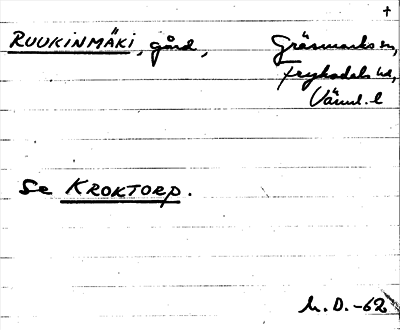 †
RUUKINMÄKI, gård, Gräsmarks sn,
Fryksdals hd,
Värml. l
Se KROKTORP.
M.D.-62